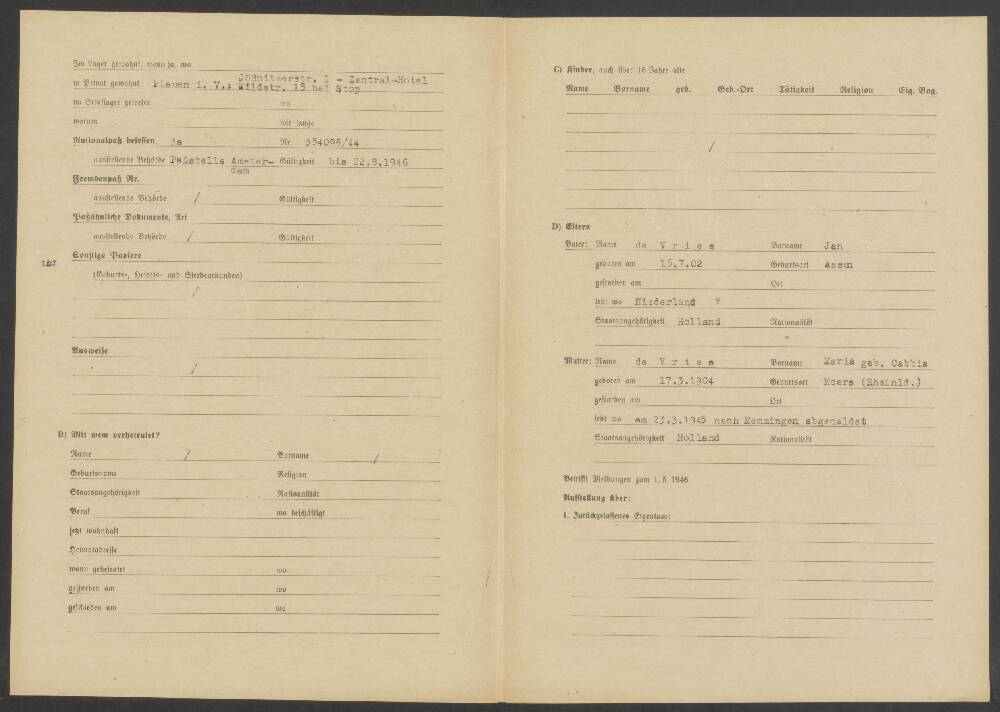 Im Lager gewohnt, wenn ja, wo
Jößnitzerstr. 1 - Zentral-Hotel
in Privat gewohnt Plauen i. V.: Wildstr. 15 bei Stop
im Straflager gewesen wo
warum wie lange
Nationalpaß besessen ja Nr. 354095/44
ausstellende Behörde Paßstelle Amster- Gültigkeit bis 22.8.1946
dam
Fremdenpaß Nr.
ausstellende Behörde / Gültigkeit
Paßähnliche Dokumente, Art
ausstellende Behörde / Gültigkeit
Sonstige Papiere
(Geburts-, Heirats- und Sterbeurkunden)
/
Ausweise
/
B) Mit wem verheiratet?
Name / Vorname /
Geburtsname Religion
Staatsangehörigkeit Nationalität
Beruf wo beschäftigt
jetzt wohnhaft
Heimatadresse
wann geheiratet wo
gestorben am wo
geschieden am wo
C) Kinder, auch über 16 Jahre alte
Name Vorname geb. Geb.-Ort Tätigkeit Religion Eig. Bog.
/
D) Eltern
Vater: Name de Vries Vorname Jan
geboren am 15.7.02 Geburtsort Assen
gestorben am Ort
lebt wo Niederland ?
Staatsangehörigkeit Holland Nationalität
Mutter: Name de Vries Vorname Maria geb. Cabbis
geboren am 17.3.1904 Geburtsort Moers (Rheinld.)
gestorben am Ort
lebt wo am 23.3.1945 nach Memmingen abgemeldet
Staatsangehörigkeit Holland Nationalität
Betrifft Meldungen zum 1. 6. 1946
Aufstellung über:
1. Zurückgelassenes Eigentum: